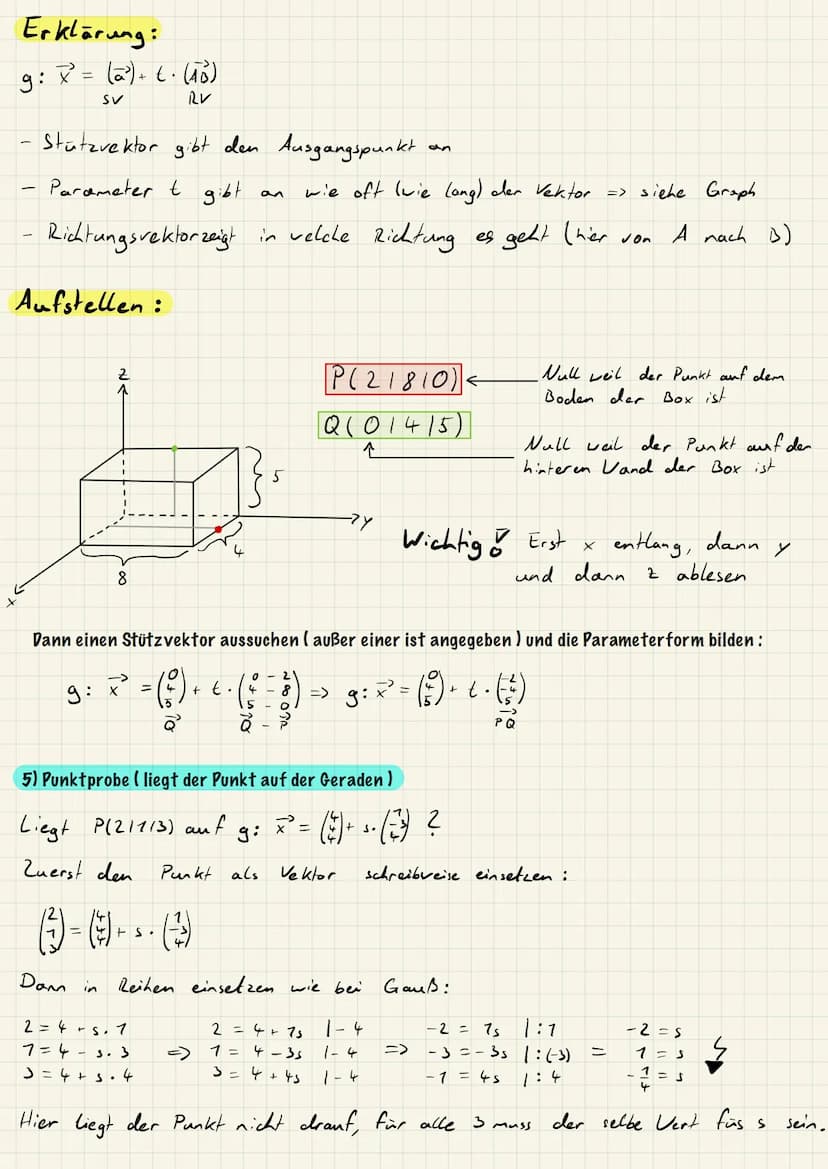 Erklärung:
g: x⃗ = (a⃗) + t · (AB⃗)
SV RV
- Stützvektor gibt den Ausgangspunkt an
- Parameter t gibt an wie oft (wie lang) der Vektor => siehe Graph
- Richtungsvektor zeigt in welche Richtung es geht (hier von A nach B)
Aufstellen:
z
P(2|8|0) ← Null weil der Punkt auf dem
Boden der Box ist
Q(0|4|5)
Null weil der Punkt auf der
hinteren Wand der Box ist
5
y
4
8
x
Wichtig! Erst x entlang, dann y
und dann z ablesen
Dann einen Stützvektor aussuchen ( außer einer ist angegeben ) und die Parameterform bilden :
g: x⃗ = (0 4 5) + t · (0 - 2 4 - 8 5 - 0) => g: x⃗ = (0 4 5) + t · (-2 -4 5)
Q⃗ Q⃗ - P⃗ PQ⃗
5) Punktprobe ( liegt der Punkt auf der Geraden )
Liegt P(2|1|3) auf g: x⃗ = (4 4 4) + s · (1 -3 4) ?
Zuerst den Punkt als Vektor schreibweise einsetzen :
(2 1 3) = (4 4 4) + s · (1 -3 4)
Dann in Reihen einsetzen wie bei Gauß:
2 = 4 + s · 1 2 = 4 + 1s |- 4 -2 = 1s |: 1 -2 = s
1 = 4 - s · 3 => 1 = 4 - 3s |- 4 => -3 = -3s |: (-3) = 1 = s
3 = 4 + s · 4 3 = 4 + 4s |- 4 -1 = 4s |: 4 -1/4 = s
Hier liegt der Punkt nicht drauf, für alle 3 muss der selbe Wert füs s sein.